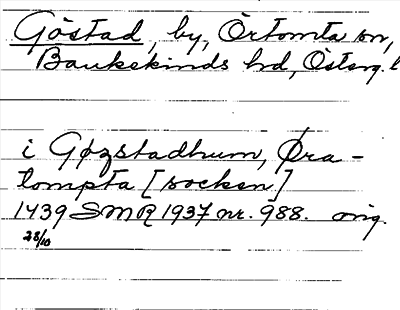 Göstad, by, Örtomta sn,
Bankekinds hd, Östorg. l
i Gøzstadhum, Øra-
tompta [socken]
1439 SMR 1937 nr. 988. orig.
28/10